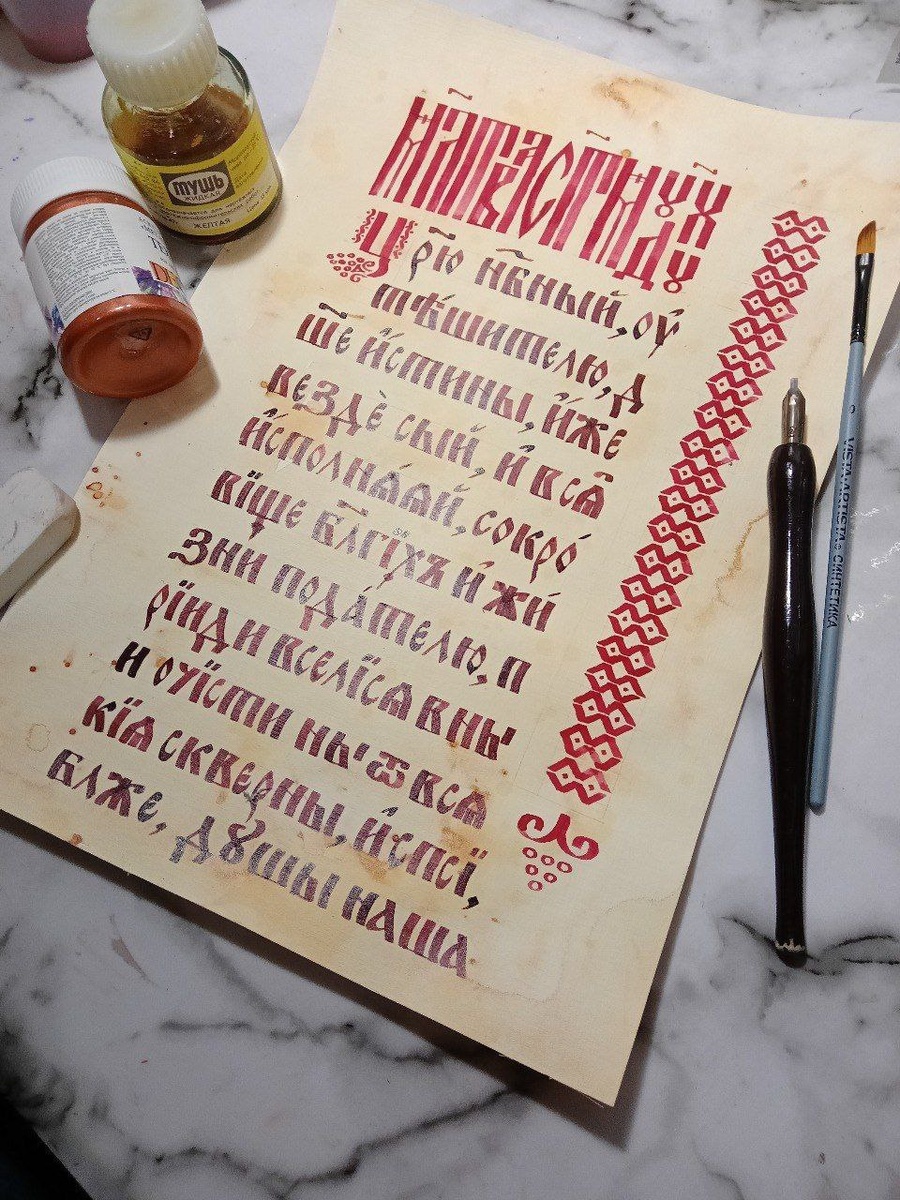 Црю̃ нб҃ный, оу҆́
тѣ́шителю, д
ше и҆́стины, и҆́же
вездѐ сый, и҆ всѧ̑
и҆сполнѧ́ѧй, сокро́
вїще бл҃гїхъ и҆ жи́
зни пода́телю, п
рїиди вселїсѧ в ны̀
и оуїсти ны̀ ѿ всѧ
кїѧ скверны, и҆ спсї,
Блже, дꙋшы наша
тушь
ЖИДКАЯ
ЖЕЛТАЯ
VISTA-ARTISTA СИНТЕТИКА